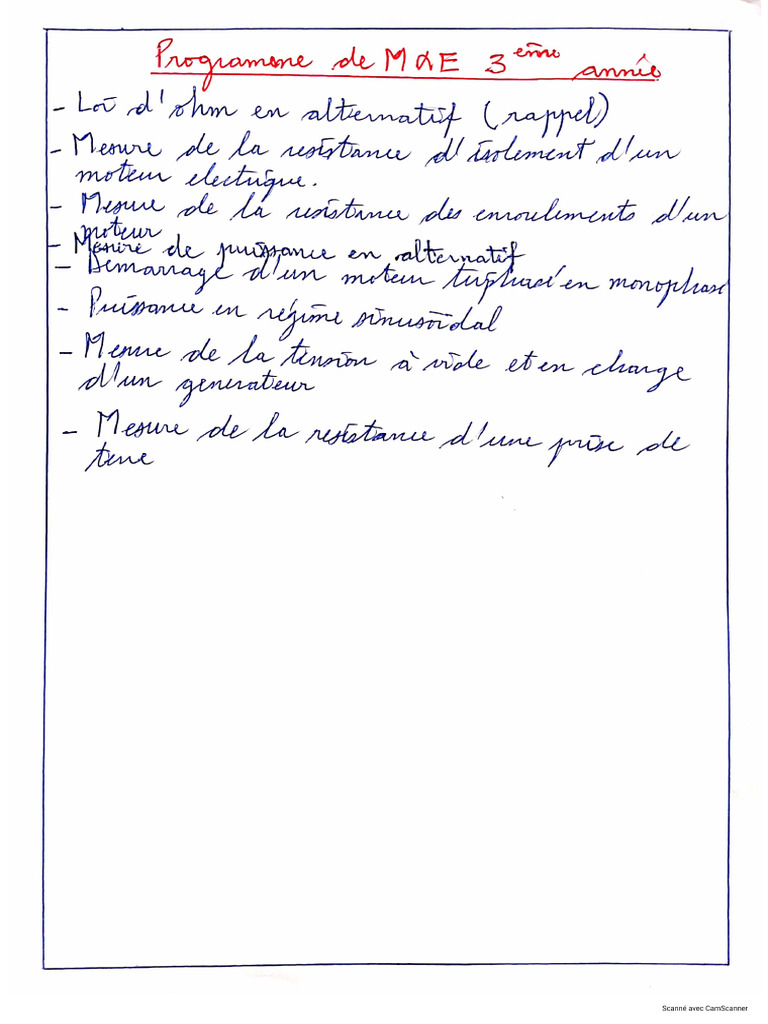 Programme de M&E 3ème année
- Loi d'ohm en alternatif (rappel)
- Mesure de la resistance d'isolement d'un
moteur electrique.
- Mesure de la resistance des enroulements d'un
moteur
- Mesure de puissance en alternatif
- Demarrage d'un moteur triphasé en monophasé
- Puissance en régime sinusoïdal
- Mesure de la tension à vide et en charge
d'un generateur
- Mesure de la resistance d'une prise de
terre
Scanné avec CamScanner